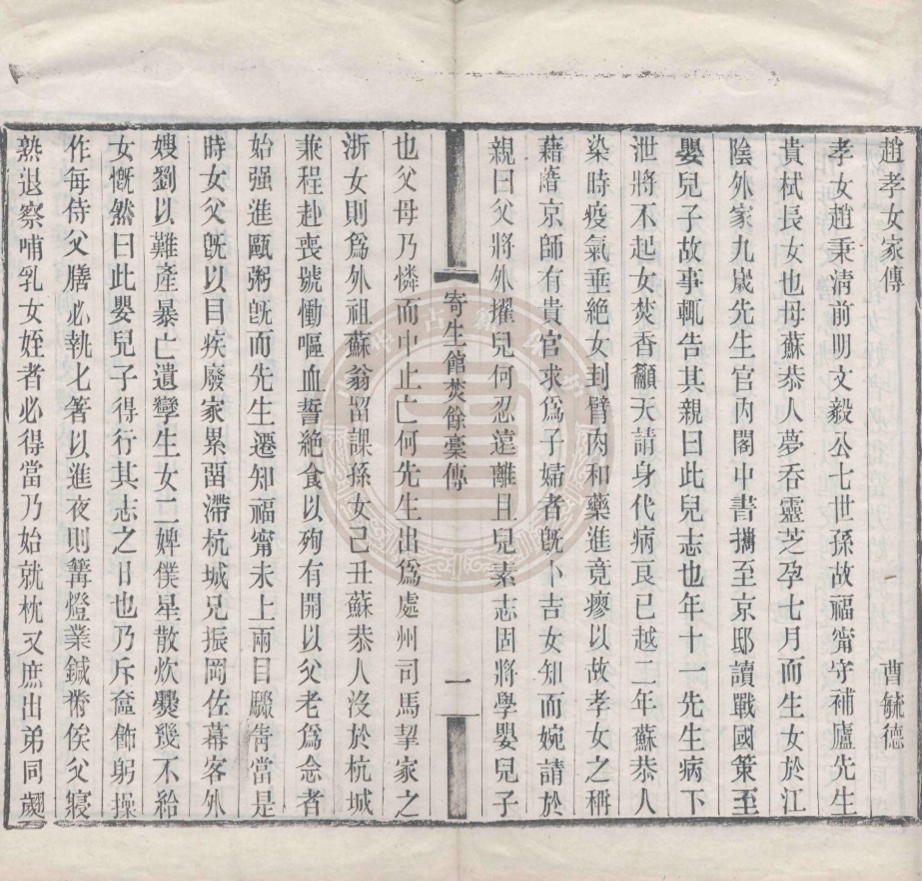 趙孝女家傳　曹毓德
孝女趙秉清前明文毅公七世孫故福甯守補廬先生
貴栻長女也母蘇恭人夢吞靈芝孕七月而生女於江
陰外家九歲先生官內閣中書攜至京邸讀戰國策至
嬰兒子故事輒告其親曰此兒志也年十一先生病下
泄將不起女焚香籲天請身代病良已越二年蘇恭人
染時疫氣垂絕女刲臂肉和藥進竟瘳以故孝女之稱
藉藉京師有貴官求爲子婦者旣卜吉女知而婉請於
親曰父將外擢兒何忍遠離且兒素志固將學嬰兒子
寄生館焚餘稾傳　一
也父母乃憐而中止亡何先生出爲處州司馬挈家之
浙女則爲外祖蘇翁留課孫女己丑蘇恭人沒於杭城
兼程赴喪號慟嘔血誓絕食以殉有開以父老爲念者
始强進甌粥旣而先生遷知福甯未上兩目驟眚當是
時女父旣以目疾廢家累畱滯杭城兄振岡佐幕客外
嫂劉以難產暴亡遺孿生女二婢僕星散炊爨幾不給
女慨然曰此嬰兒子得行其志之日也乃斥奩飾躬操
作每侍父膳必執匕箸以進夜則篝燈業鍼黹俟父寢
熟退察哺乳女姪者必得當乃始就枕又庶出弟同翽